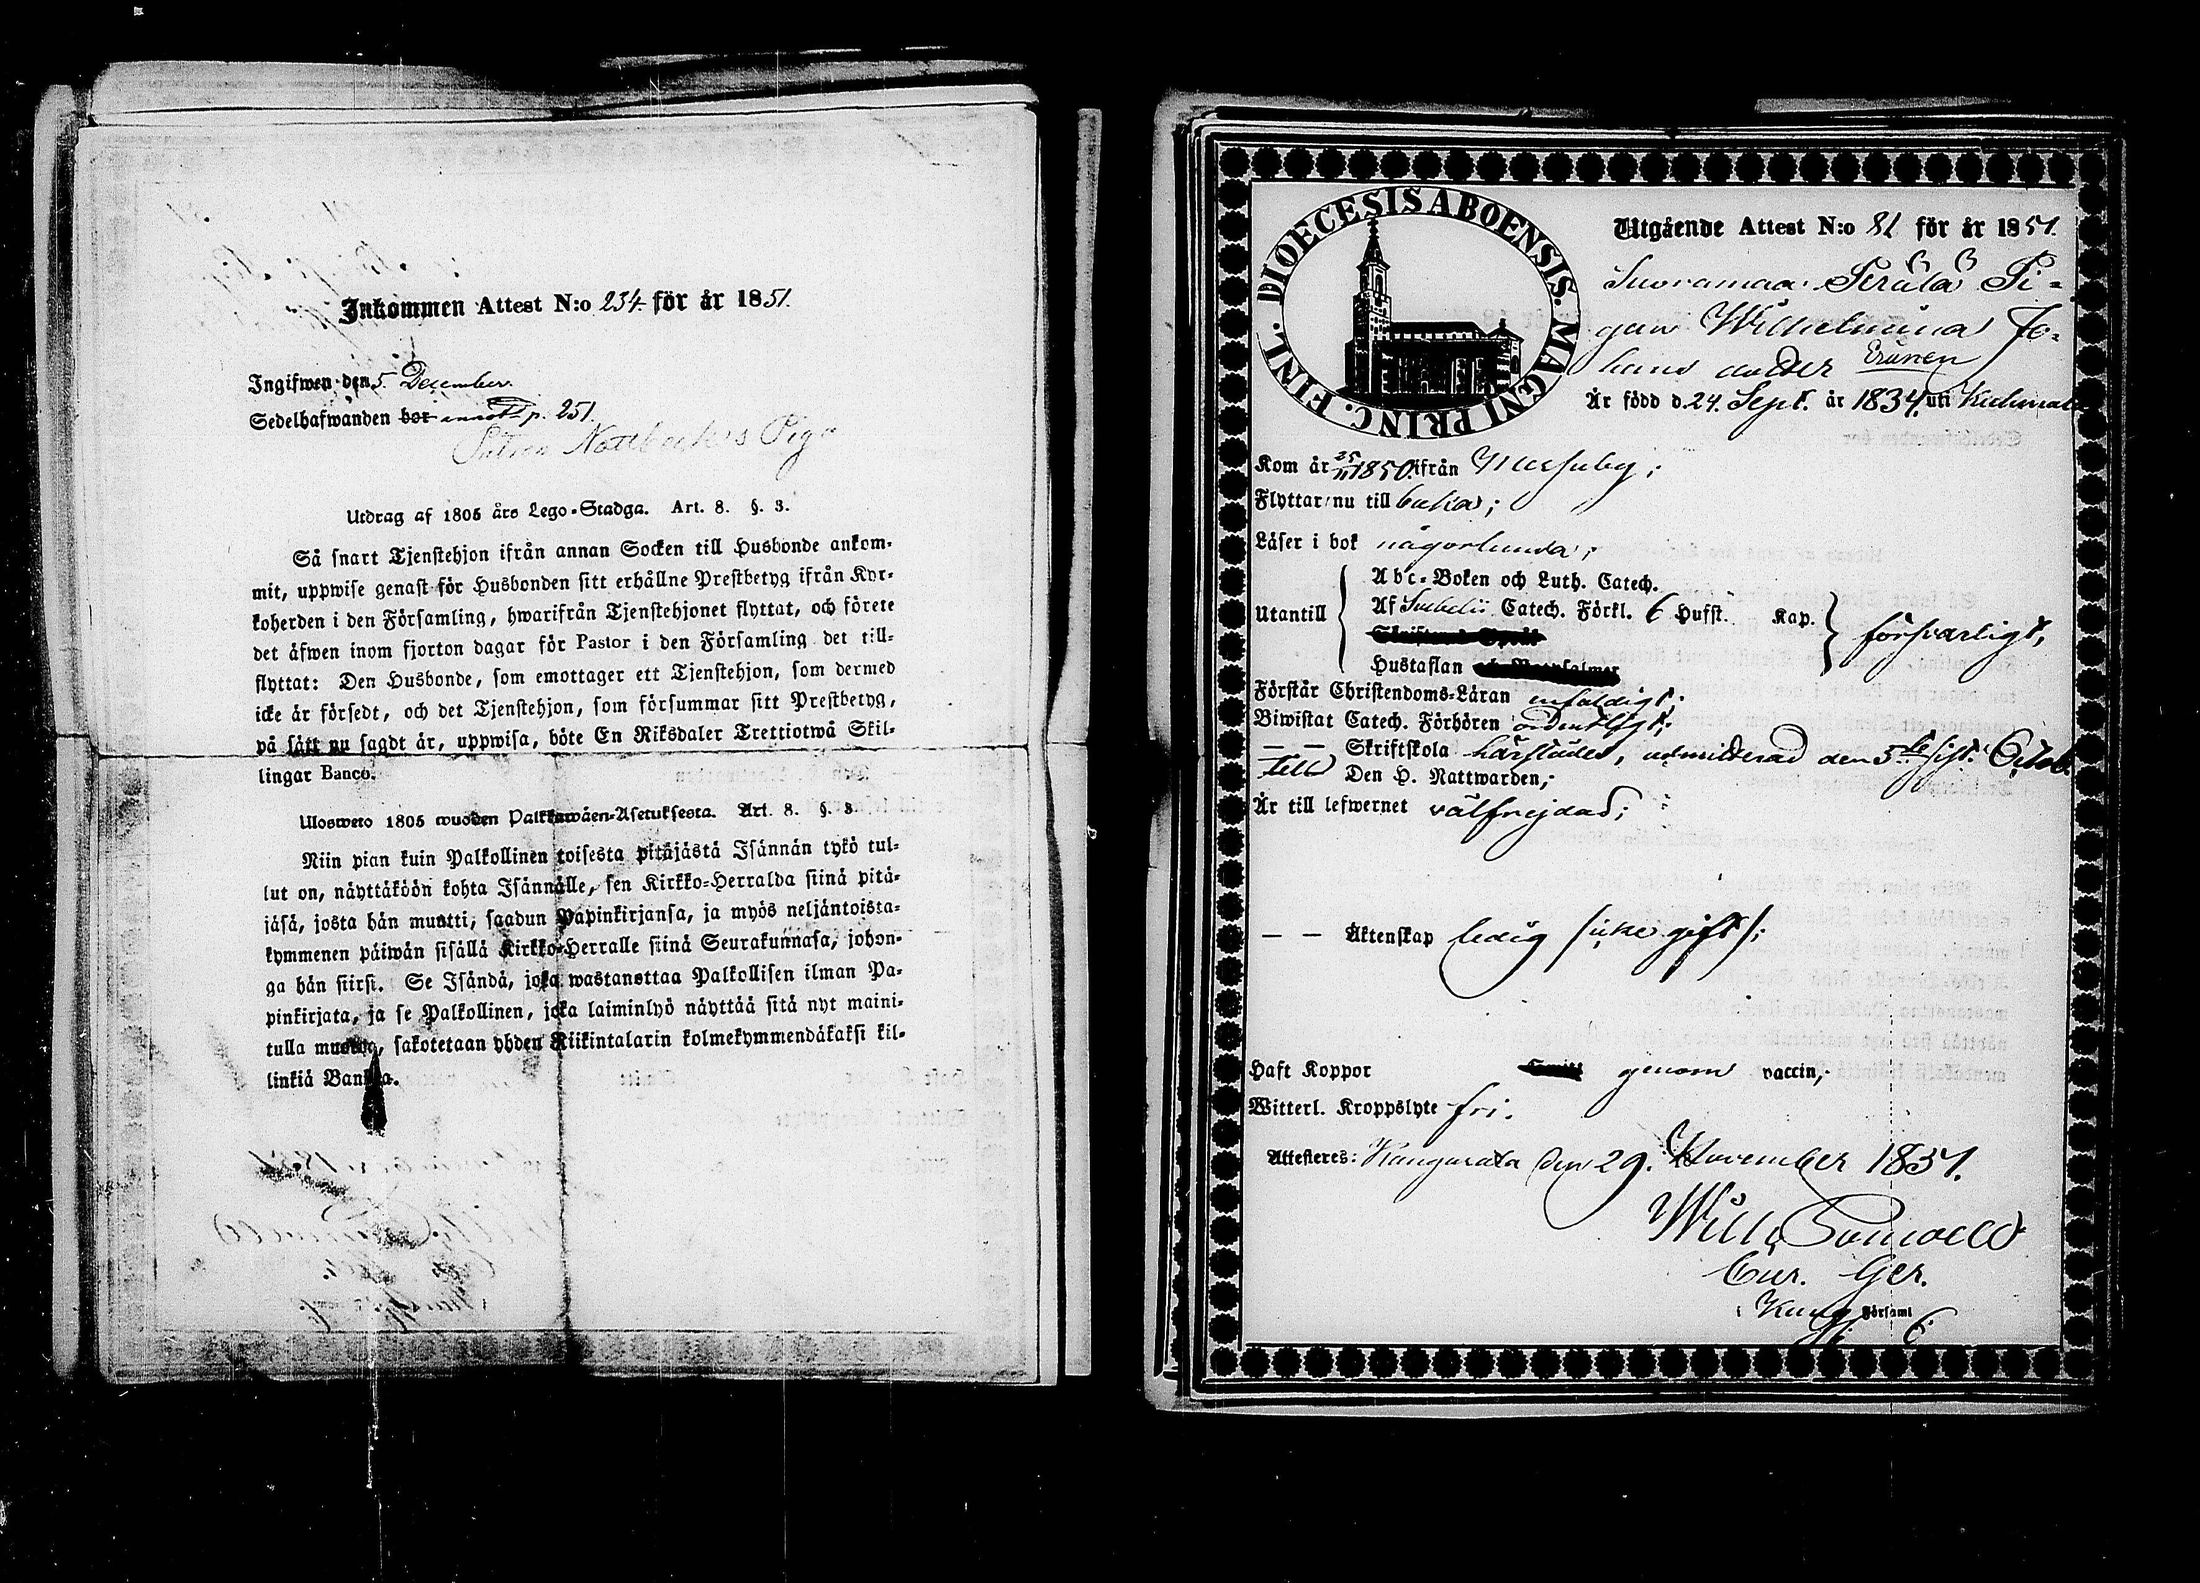 Inkommen Attest N:o 234. för år 1851.
Ingifwen den 5. December.
Sedelhafwanden bor p. 251
Nottbecks Piga
Utdrag af 1805 års Lego-Stadga. Art. 8. §. 3.
Så snart Tjenstehjon ifrån annan Socken till Husbonde ankom-
mit, uppwise genast för Husbonden sitt erhållne Prestbetyg ifrån Kyr-
koherden i den Församling, hwarifrån Tjenstehjonet flyttat, och förete
det äfwen inom fjorton dagar för Pastor i den Församling det till-
flyttat: Den Husbonde, som emottager ett Tjenstehjon, som dermed
icke är försedt, och det Tjenstehjon, som försummar sitt Prestbetyg,
på sätt nu sagdt är, uppwisa, böte En Riksdaler Trettiotwå Skil-
lingar Banco.
Ulosweto 1805 wuoden Palkkawäen-Asetuksesta. Art. 8. §. 3.
Niin pian kuin Palkollinen toisesta pitäjästä Isännän tykö tul-
lut on, näyttäköön kohta Isännälle, sen Kirkko-Herralda siinä pitä-
jäsä, josta hän muutti, saadun Papinkirjansa, ja myös neljäntoista-
kymmenen päiwän sisällä Kirkko-Herralle siinä Seurakunnasa, johon-
ga hän siirsi. Se Isändä, joka wastanottaa Palkollisen ilman Pa-
pinkirjata, ja se Palkollinen, joka laiminlyö näyttää sitä nyt maini-
tulla muotoa, sakotetaan yhden Riikintalarin kolmekymmendäkaksi kil-
linkiä Bankoa.
DIOECESIS ABOENSIS. MAGNI PRINC. FINL.
Utgående Attest N:o 81 för år 1851.
Suoramaa Perälä Pi-
gan Wilhelmina Jo-
hans dotter Eränen
Är född d. 24. Sept. år 1834. uti Kuhmal
Kom år 25/11 1850. ifrån Messuby;
Flyttar nu till
Läser i bok någorlunda;
Abc-Boken och Luth. Catech.
Utantill Af Svebelii Catech. Förkl. 6 Hufst. Kap. försvarligt,
Hustaflan
Förstår Christendoms-Läran enfaldigt;
Biwistat Catech. Förhören ordentligt;
— — Skriftskola härstädes, admitterad den 5. sistl. Octob.
till Den H. Nattwarden;
Är till lefwernet välfrejdad;
— — Äktenskap ledig /icke gift/;
Haft Koppor genom vaccin;
Witterl. Kroppslyte fri.
Attesteres: Kangasala den 29. November 1851.
Wilh.
Cur. Ger.
i Kang Församl